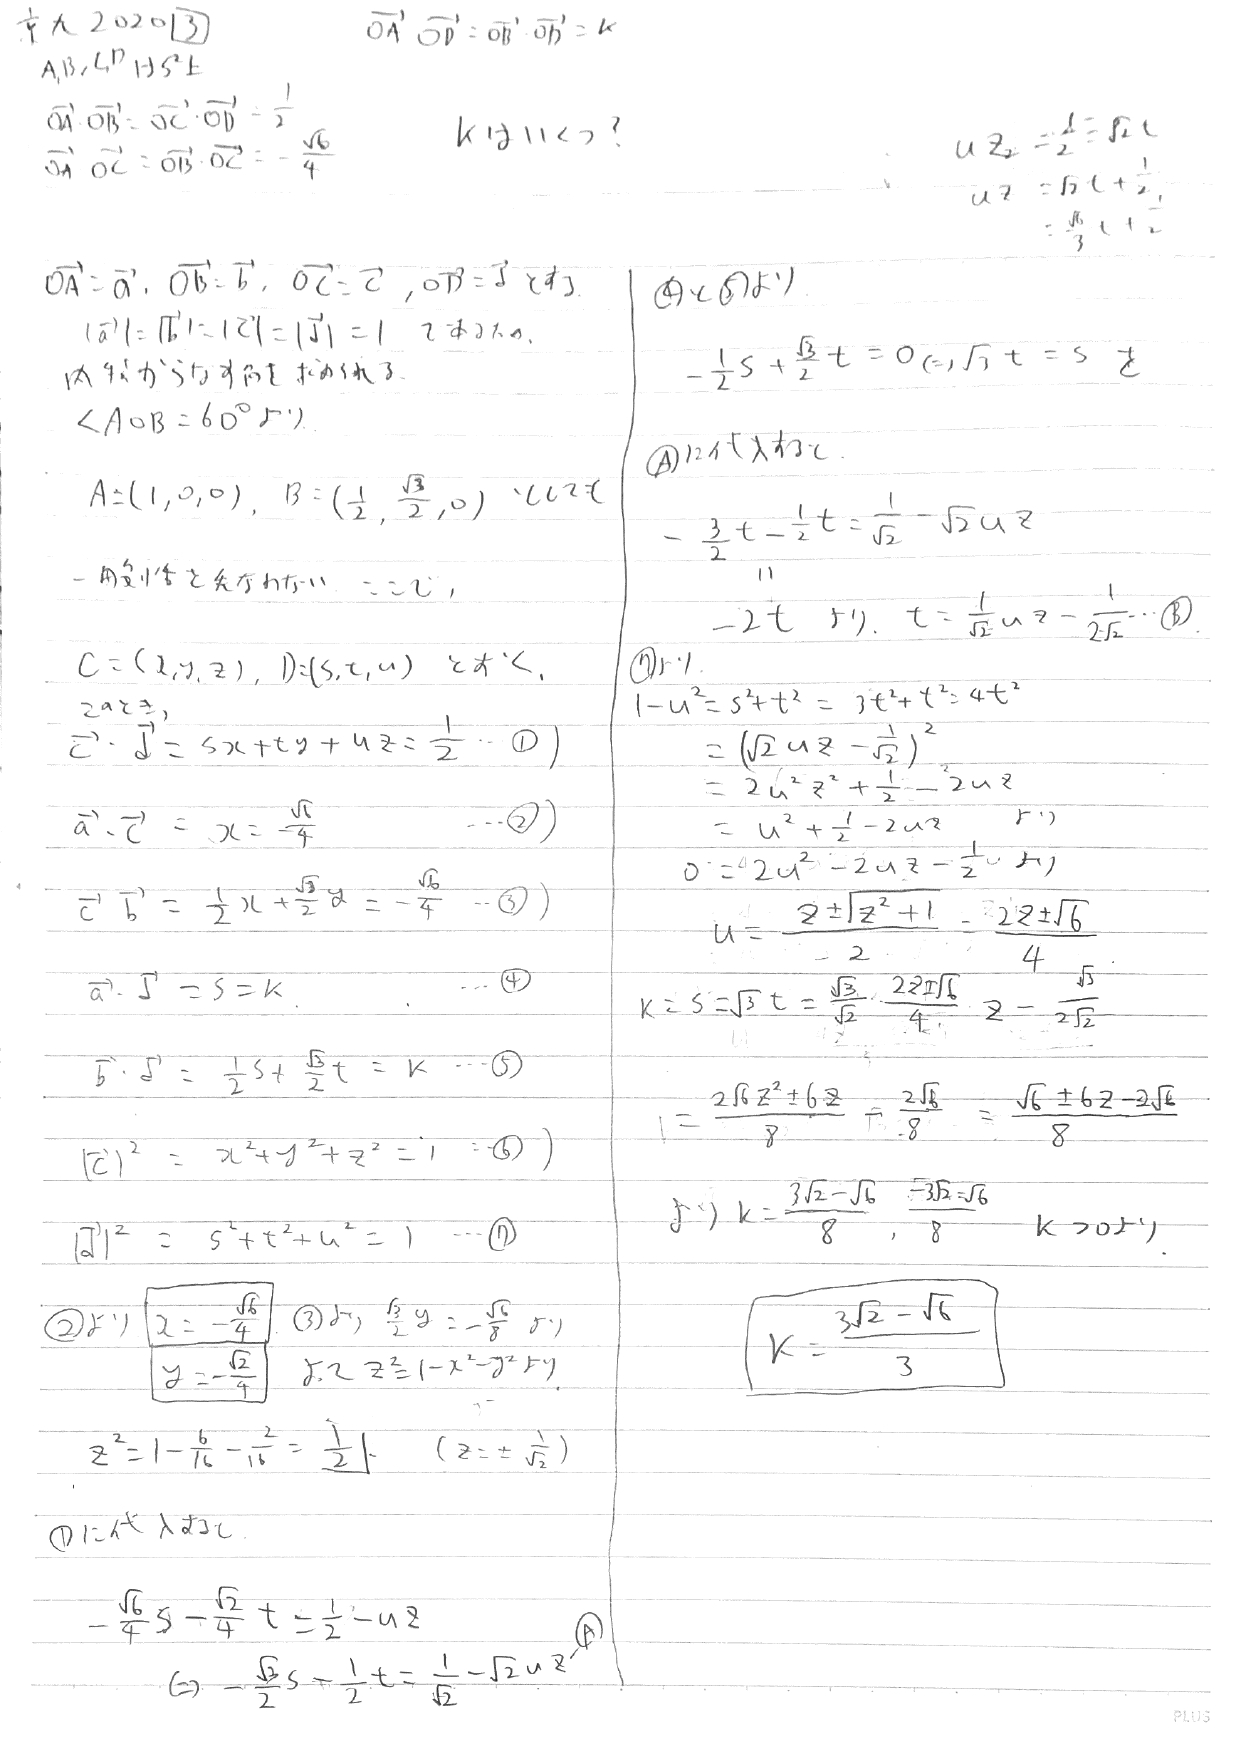 京大 2020 3
OA・OD = OB・OD = k
A, B, C, D は S²上
OA・OB = OC・OD = 1/2
OA・OC = OB・OC = -√6/4
kはいくつ?
uz - 1/2 = √2t
uz = √2t + 1/2
= √6/3 t + 1/2
OA = a, OB = b, OC = c, OD = d とする
|a| = |b| = |c| = |d| = 1 であるため,
内積からなす角を求められる.
∠AOB = 60° より
A = (1, 0, 0), B = (1/2, √3/2, 0) としても
一般性を失なわない ここで,
C = (x, y, z), D = (s, t, u) とおく,
このとき,
c・d = sx + ty + uz = 1/2 … ①
a・c = x = -√6/4 … ②
c・b = 1/2 x + √3/2 y = -√6/4 … ③
a・d = s = k … ④
b・d = 1/2 s + √3/2 t = k … ⑤
|c|² = x² + y² + z² = 1 … ⑥
|d|² = s² + t² + u² = 1 … ⑦
②より x = -√6/4 ③より √3/2 y = -√6/8 より
y = -√2/4 よって z² = 1 - x² - y² より
z² = 1 - 6/16 - 2/16 = 1/2 (z = ± 1/√2)
①に代入すると
-√6/4 s - √2/4 t = 1/2 - uz
⇔ -√3/2 s - 1/2 t = 1/√2 - √2uz Ⓐ
④と⑤より
-1/2 s + √3/2 t = 0 ⇔ √3t = s を
Ⓐに代入すると
-3/2 t - 1/2 t = 1/√2 - √2uz
=
-2t より, t = 1/√2 uz - 1/2√2 … Ⓑ
⑦より
1 - u² = s² + t² = 3t² + t² = 4t²
= (√2uz - 1/√2)²
= 2u²z² + 1/2 - 2uz
= u² + 1/2 - 2uz より
0 = 2u² - 2uz - 1/2 より
u = z±√z²+1 / 2 = 2z±√6 / 4
k = s = √3t = √3/√2 ・ 2z±√6 / 4 ・ z - √3/2√2
= 2√6z² ± 6z / 8 - 2√6/8 = √6 ± 6z - 2√6 / 8
より k = 3√2-√6 / 8, -3√2-√6 / 8 k > 0より
k = 3√2 - √6 / 3
PLUS